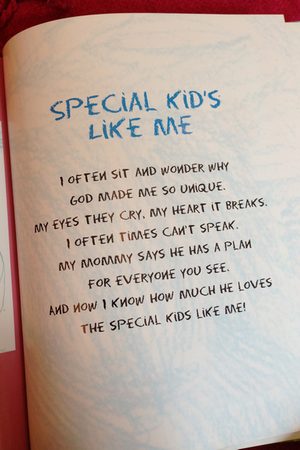 SPECIAL KID'S
LIKE ME
I OFTEN SIT AND WONDER WHY
GOD MADE ME SO UNIQUE.
MY EYES THEY CRY, MY HEART IT BREAKS.
I OFTEN TIMES CAN'T SPEAK.
MY MOMMY SAYS HE HAS A PLAN
FOR EVERYONE YOU SEE.
AND NOW I KNOW HOW MUCH HE LOVES
THE SPECIAL KIDS LIKE ME!